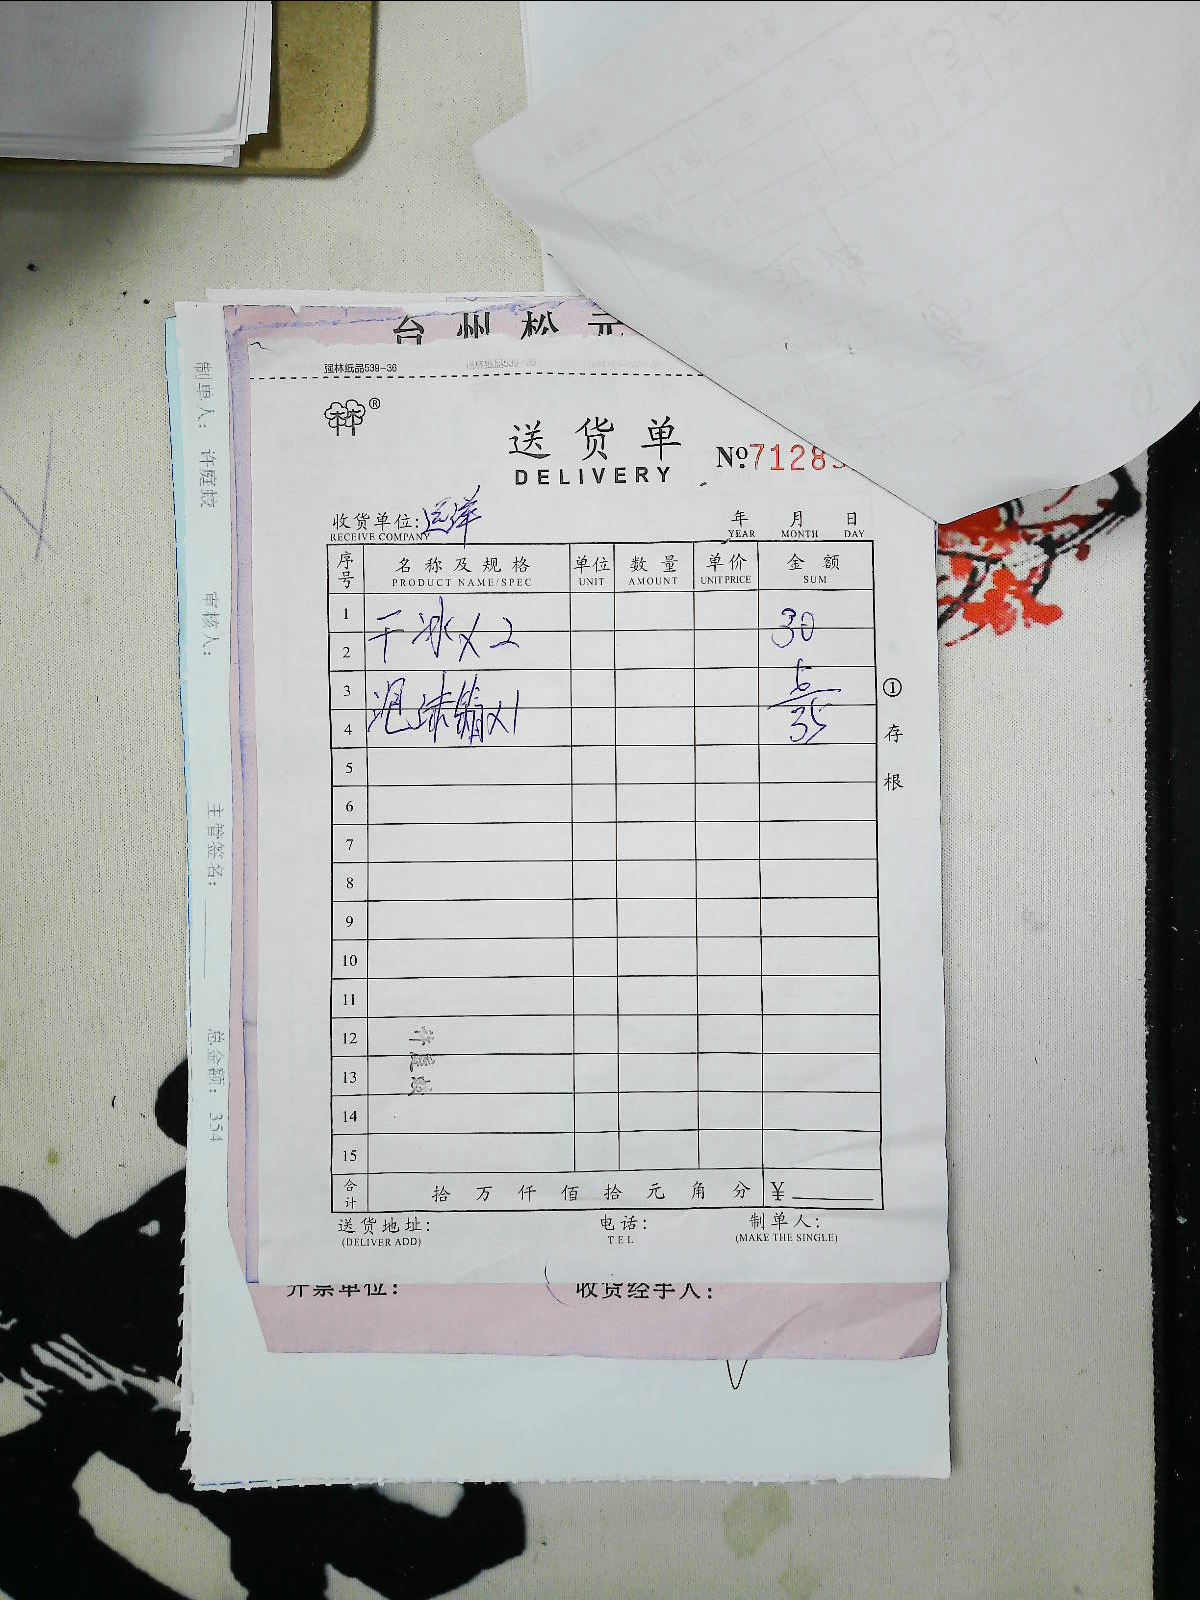 台州松元
强林纸品539-36
®
送货单
DELIVERY
№7128
收货单位:远洋
RECEIVE COMPANY
年 月 日
YEAR MONTH DAY
序号 名称及规格 单位 数量 单价 金额
PRODUCT NAME/SPEC UNIT AMOUNT UNIT PRICE SUM
1
干冰×2 30
2
3
泡沫箱×1 5
4
35
5
6
7
8
9
10
11
12
13
14
15
合计 拾万仟佰拾元角分 ¥
送货地址: 电话: 制单人:
(DELIVER ADD) TEL (MAKE THE SINGLE)
①存根
开票单位: 收货经手人:
制单人: 许庭蛟 审核人: 主管签名: 总金额: 354